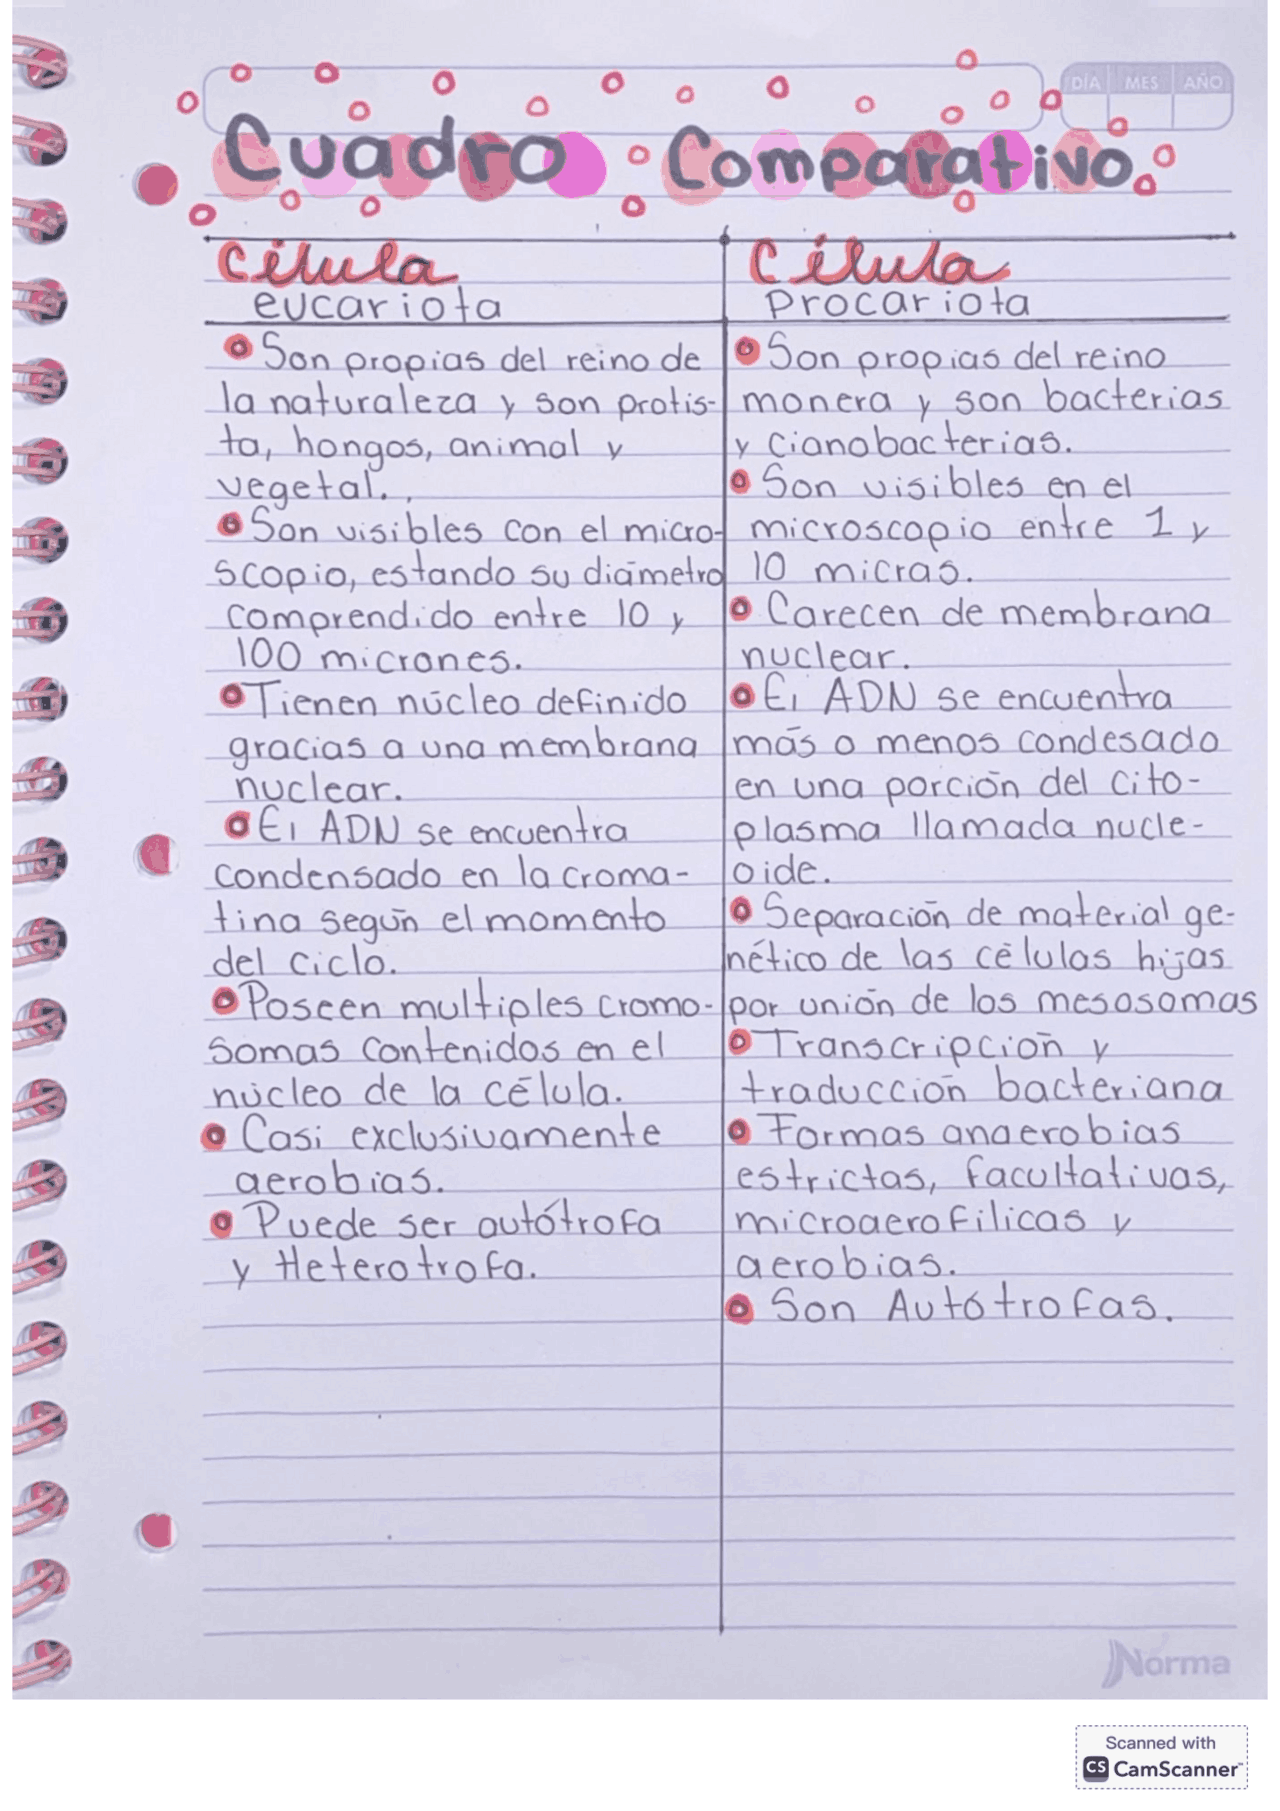 DÍA MES AÑO
Cuadro Comparativo
Célula
eucariota
Son propias del reino de
la naturaleza y son protis-
ta, hongos, animal y
vegetal.
Son visibles con el micro-
scopio, estando su diámetro
comprendido entre 10 y
100 micrones.
Tienen núcleo definido
gracias a una membrana
nuclear.
El ADN se encuentra
condensado en la croma-
tina según el momento
del ciclo.
Poseen multiples cromo-
somas contenidos en el
núcleo de la célula.
Casi exclusivamente
aerobias.
Puede ser autótrofa
y Heterotrofa.
Célula
procariota
Son propias del reino
monera y son bacterias
y cianobacterias.
Son visibles en el
microscopio entre 1 y
10 micras.
Carecen de membrana
nuclear.
El ADN se encuentra
más o menos condesado
en una porción del cito-
plasma llamada nucle-
oide.
Separación de material ge-
nético de las células hijas
por unión de los mesosomas
Transcripción y
traducción bacteriana
Formas anaerobias
estrictas, facultativas,
microaerofilicas y
aerobias.
Son Autótrofas.
Norma
Scanned with
CS CamScanner